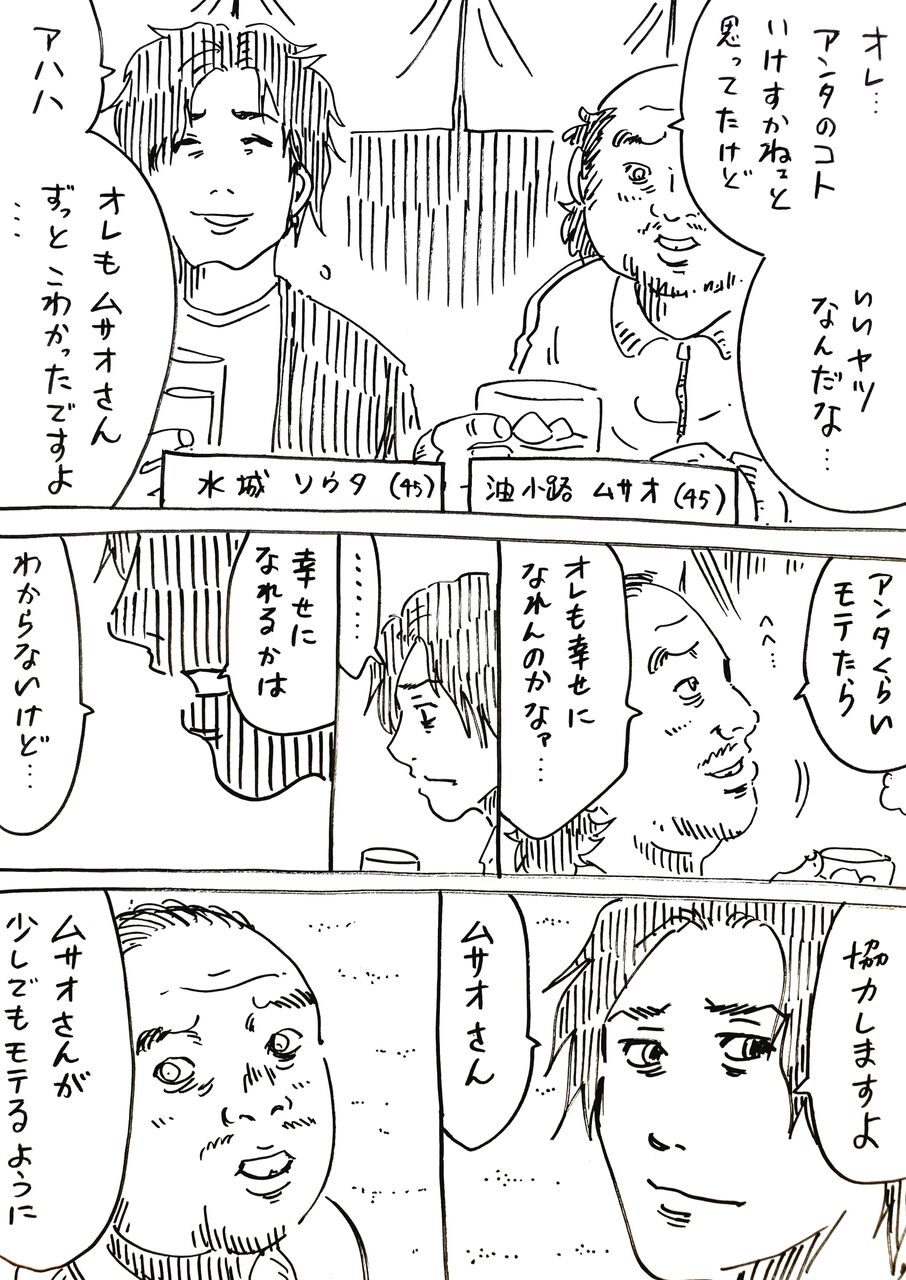 オレ…
アンタのコト
いけすかねェと
思ってたけど
いいヤツ
なんだな…
アハハ
オレもムサオさん
ずっとこわかったですよ
……
油小路 ムサオ(45)
水城 ソウタ(45)
アンタくらい
モテたら
オレも幸せに
なれんのかなァ…
……
幸せに
なれるかは
わからないけど…
協力しますよ
ムサオさん
ムサオさんが
少しでもモテるように